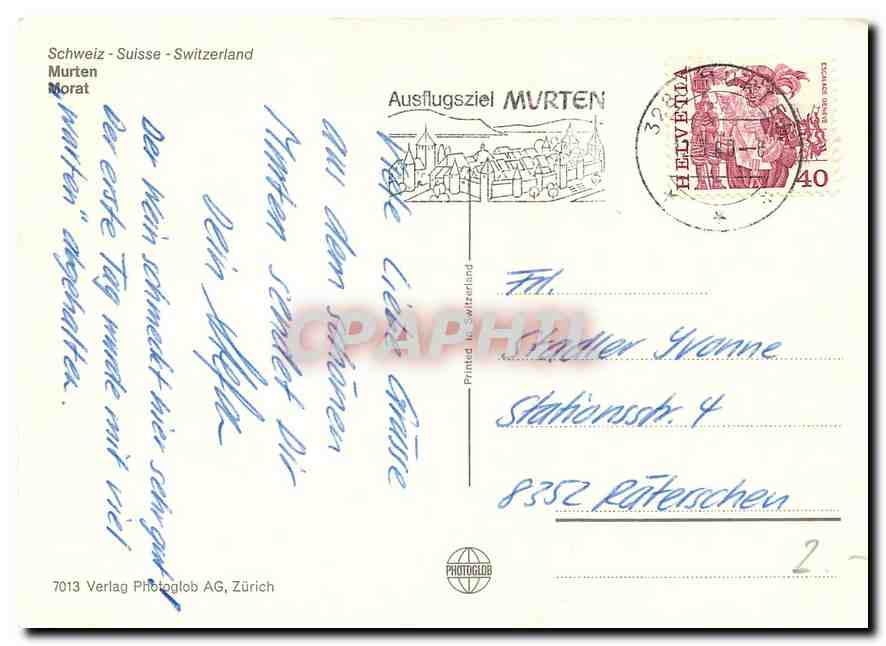 Schweiz - Suisse - Switzerland
Murten
Morat
Ausflugsziel MURTEN
HELVETIA
ESCALADE GENÈVE
40
328
Viele Liebe Grüsse
aus dem schönen
Murten sendet Dir
Dein
Der Wein schmeckt hier sehr gut!
Der erste Tag wurde mit viel
"warten" abgehalten.
Printed in Switzerland
Frl.
Stadler Yvonne
Stationsstr. 4
8352 Räterschen
2.-
PHOTOGLOB
7013 Verlag Photoglob AG, Zürich
CPAPHIL